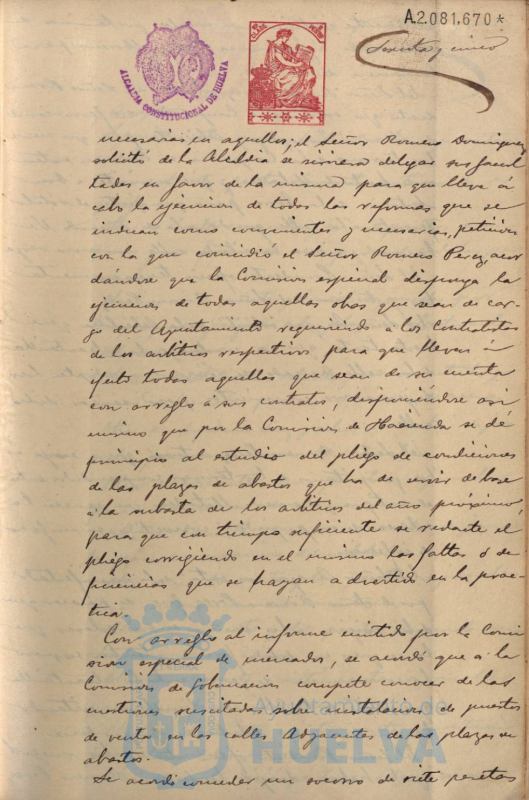 A.2.081.670 *
Sesenta y cinco
ALCALDIA CONSTITUCIONAL DE HUELVA
necesarias en aquellos; el Señor Romero Dominguez
solicitó de la Alcaldia se sirviera delegar sus facul
tades en favor de la misma para que lleve á
cabo la ejecucion de todas las reformas que se
indican como convenientes y necesarias, peticion
con la que coincidió el Señor Romero Perez, acor
dándose que la Comision especial disponga la
ejecucion de todas aquellas obras que sean de car
go del Ayuntamiento requiriendo á los Contratistas
de los arbitrios respectivos para que lleven á
efecto todas aquellas que sean de su cuenta
con arreglo á sus contratos, disponiéndose asi
mismo que por la Comision de Hacienda se dé
principio al estudio del pliego de condiciones
de las plazas de abastos que ha de servir de base
á la subasta de los arbitrios del año próximo,
para que con tiempo suficiente se redacte el
pliego corrigiendo en el mismo las faltas ó de
ficiencias que se hayan advertido en la prac-
tica.
Con arreglo al informe emitido por la Comi
sion especial de mercados, se acordó que á la
Comision de Gobernacion compete conocer de las
cuestiones suscitadas sobre instalacion de puestos
de venta en las calles Adyacentes de las plazas de
abastos.
Se acordó conceder un socorro de siete pesetas
Ayuntamiento de
HUELVA